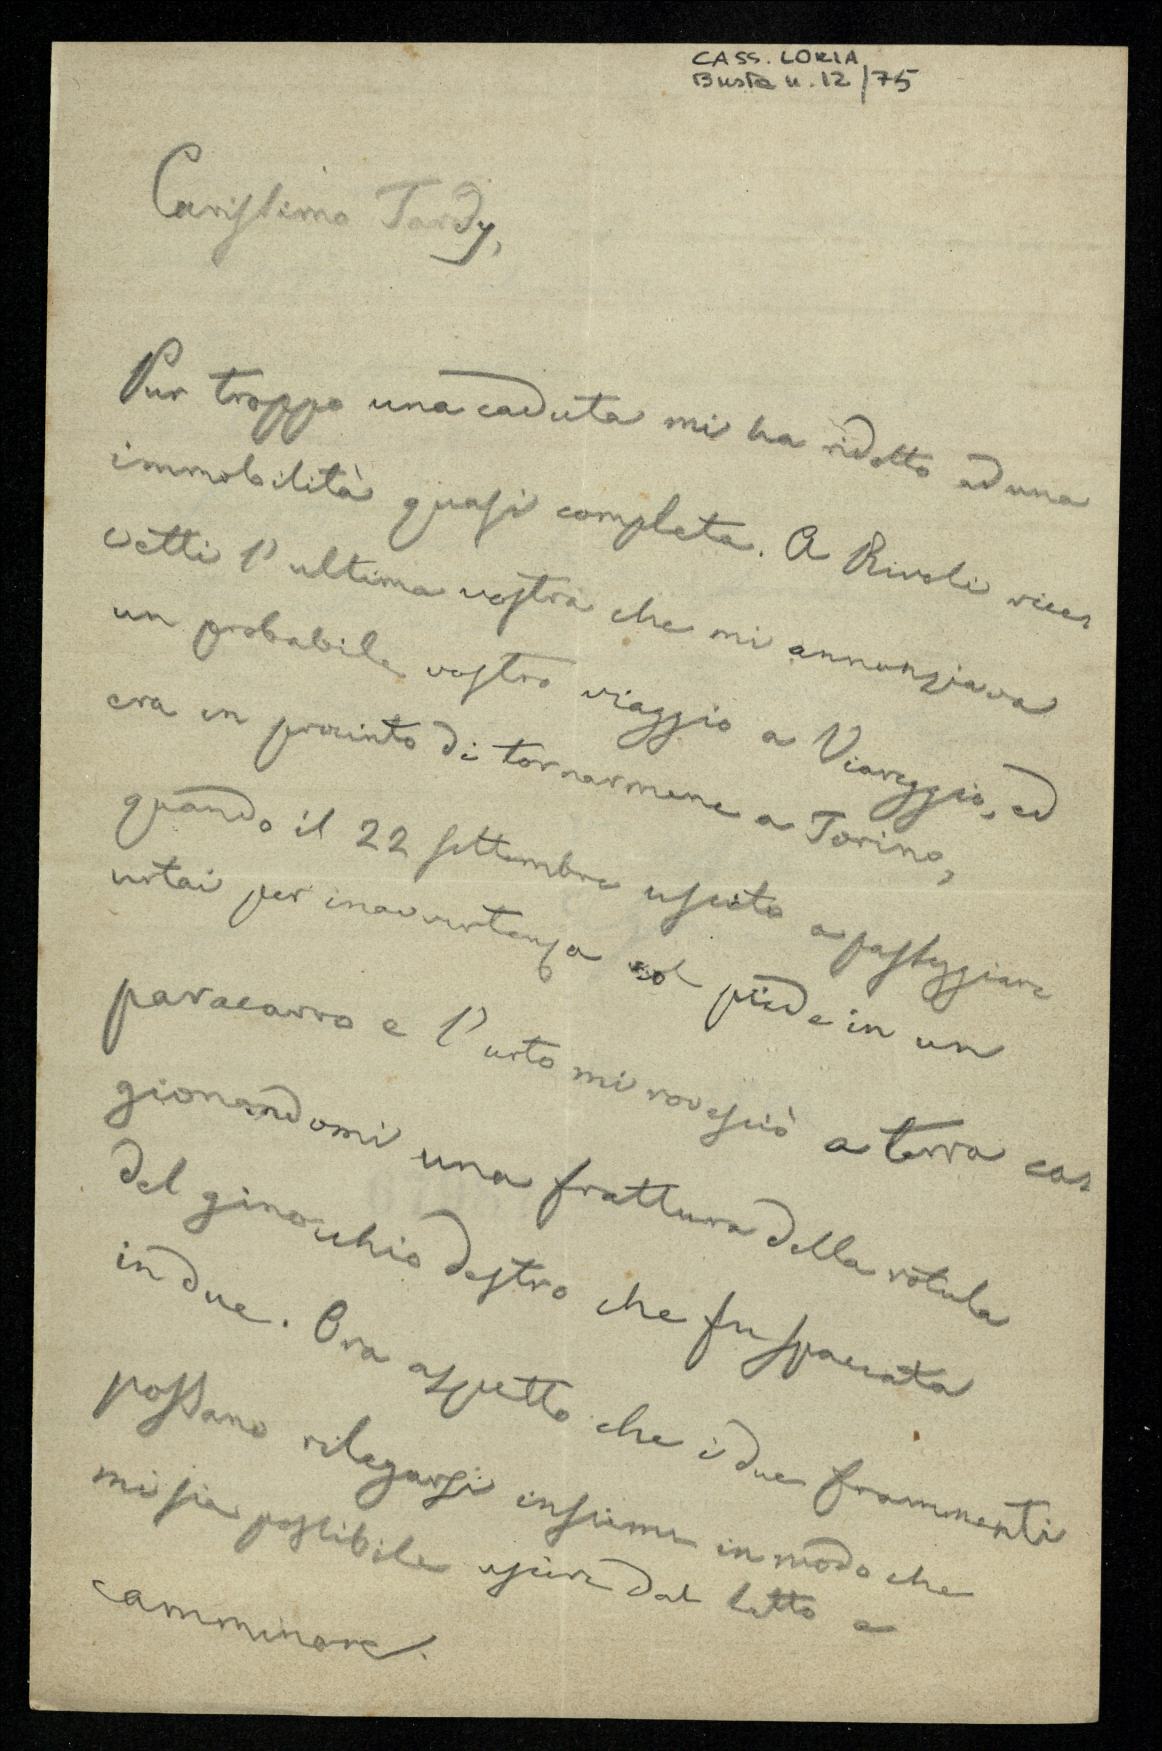 CASS. LORIA
Busta n. 12/75
Carissimo Tardy,
Pur troppo una caduta mi ha ridotto ad una
immobilità quasi completa. A Rivoli rice-
vetti l'ultima vostra che mi annunziava
un probabile vostro viaggio a Viareggio, ed
era in procinto di tornarmene a Torino,
quando il 22 settembre uscito a passeggiare
urtai per inavvertenza col piede in un
paracarro e l'urto mi rovesciò a terra ca-
gionandomi una frattura della rotula
del ginocchio destro che fu spaccata
in due. Ora aspetto che i due frammenti
possano rilegarsi insieme in modo che
mi sia possibile uscire dal letto e
camminare.